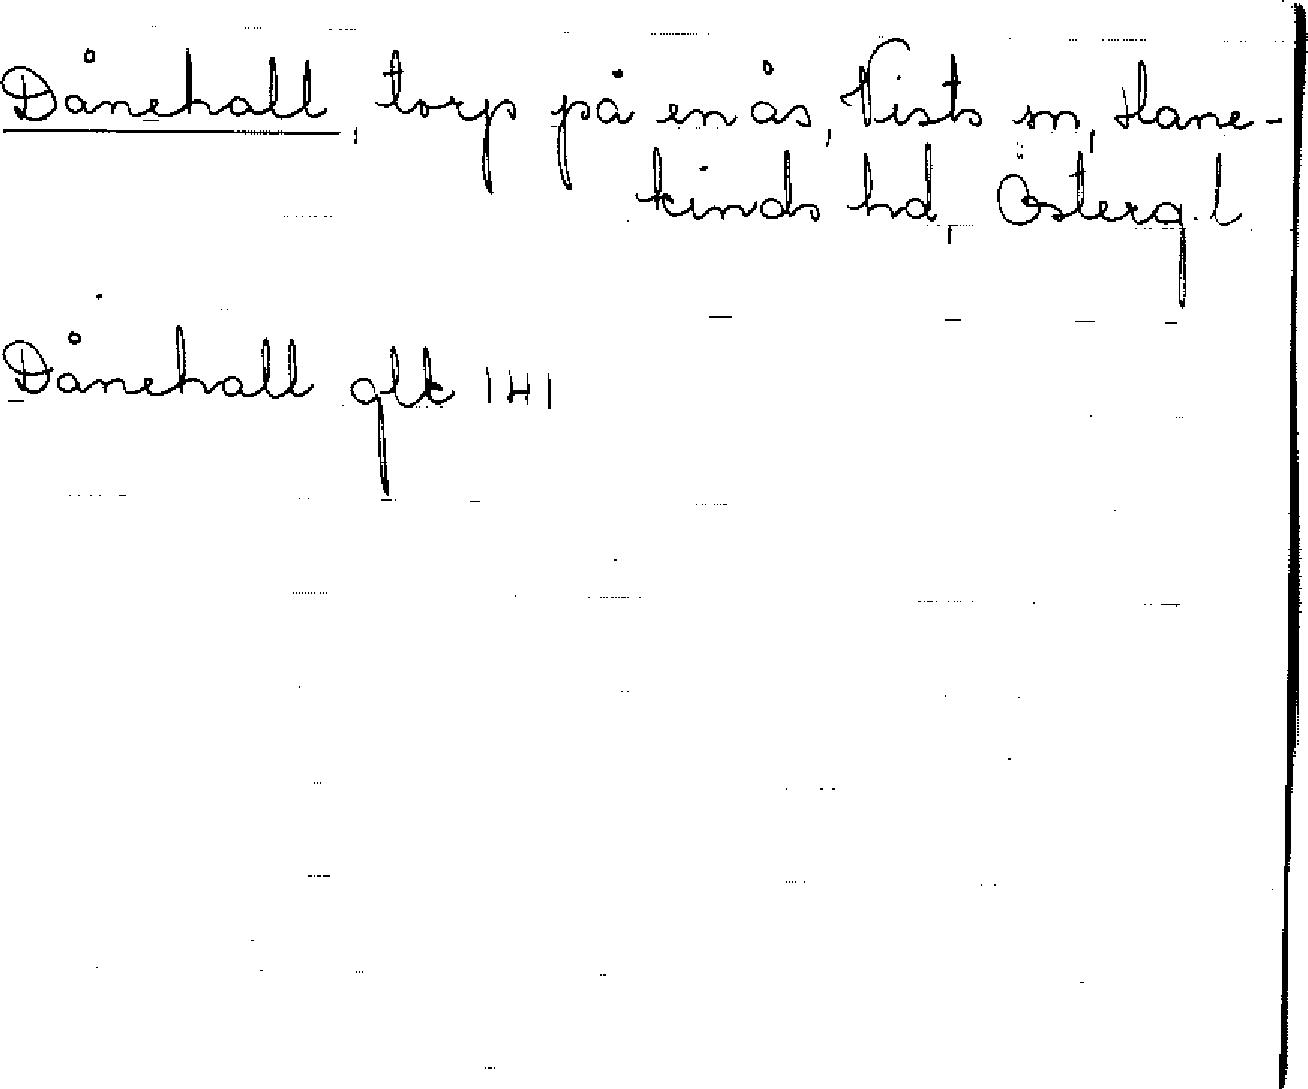 Dånehall, torp på en ås, Vists sn, Hane-
kinds hd, Österg. l
Dånehall glk 141